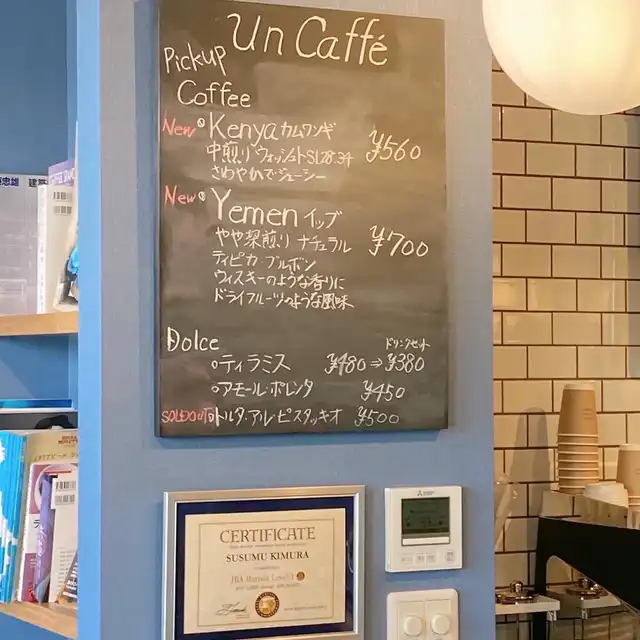 Un Caffé
Pickup
Coffee
New Kenya カムワンギ ¥560
中煎り ウォッシュト SL28.34
さわやかでジューシー
New Yemen イッブ ¥700
やや深煎り ナチュラル
ティピカ・ブルボン
ウィスキーのような香りに
ドライフルーツのような風味
Dolce ドリンクセット
ティラミス ¥480⇒¥380
アモール・ポレンタ ¥450
SOLD OUT トルタ・アル・ピスタッキオ ¥500
CERTIFICATE
SUSUMU KIMURA
JBA Barista Level 1